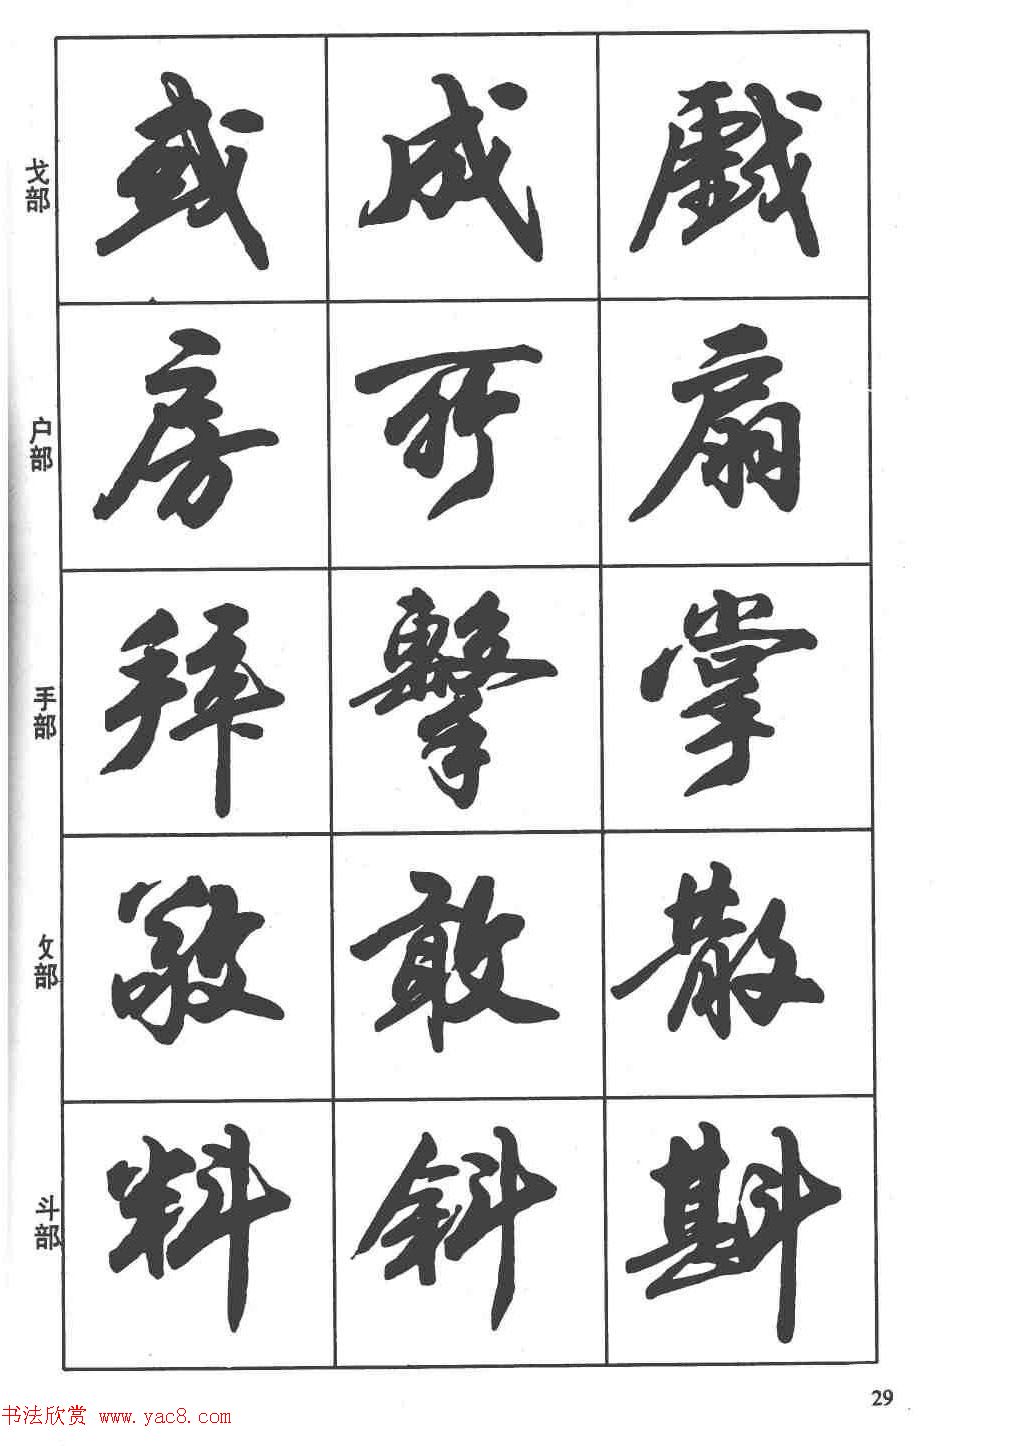 戈部
或 成 戲
户部
房 所 扇
手部
拜 擊 掌
攵部
敬 敢 散
斗部
料 斜 斟
29
书法欣赏 www.yac8.com